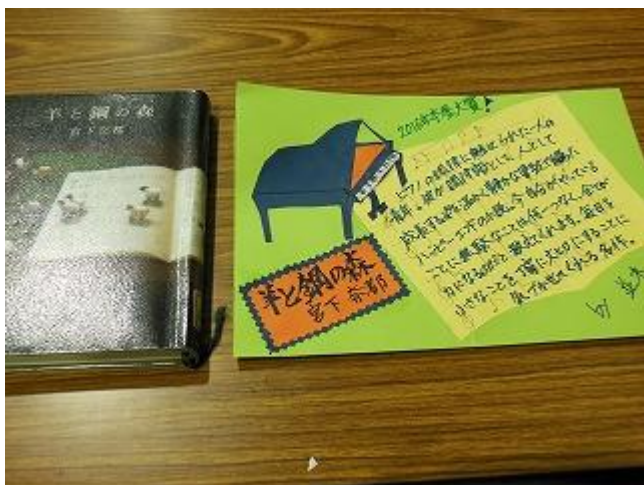 羊と鋼の森
宮下奈都
2016年本屋大賞!
ピアノの調律に魅せられた一人の
青年。彼が調律師として、人として
成長する姿を温かく静かな筆致で綴った
ことに無駄なことは何一つなく、全てが
力になるのだと教えてくれます。毎日を
小さなことを丁寧に大切にすることに
気づかせてくれる名作。
羊と鋼の森
宮下 奈都